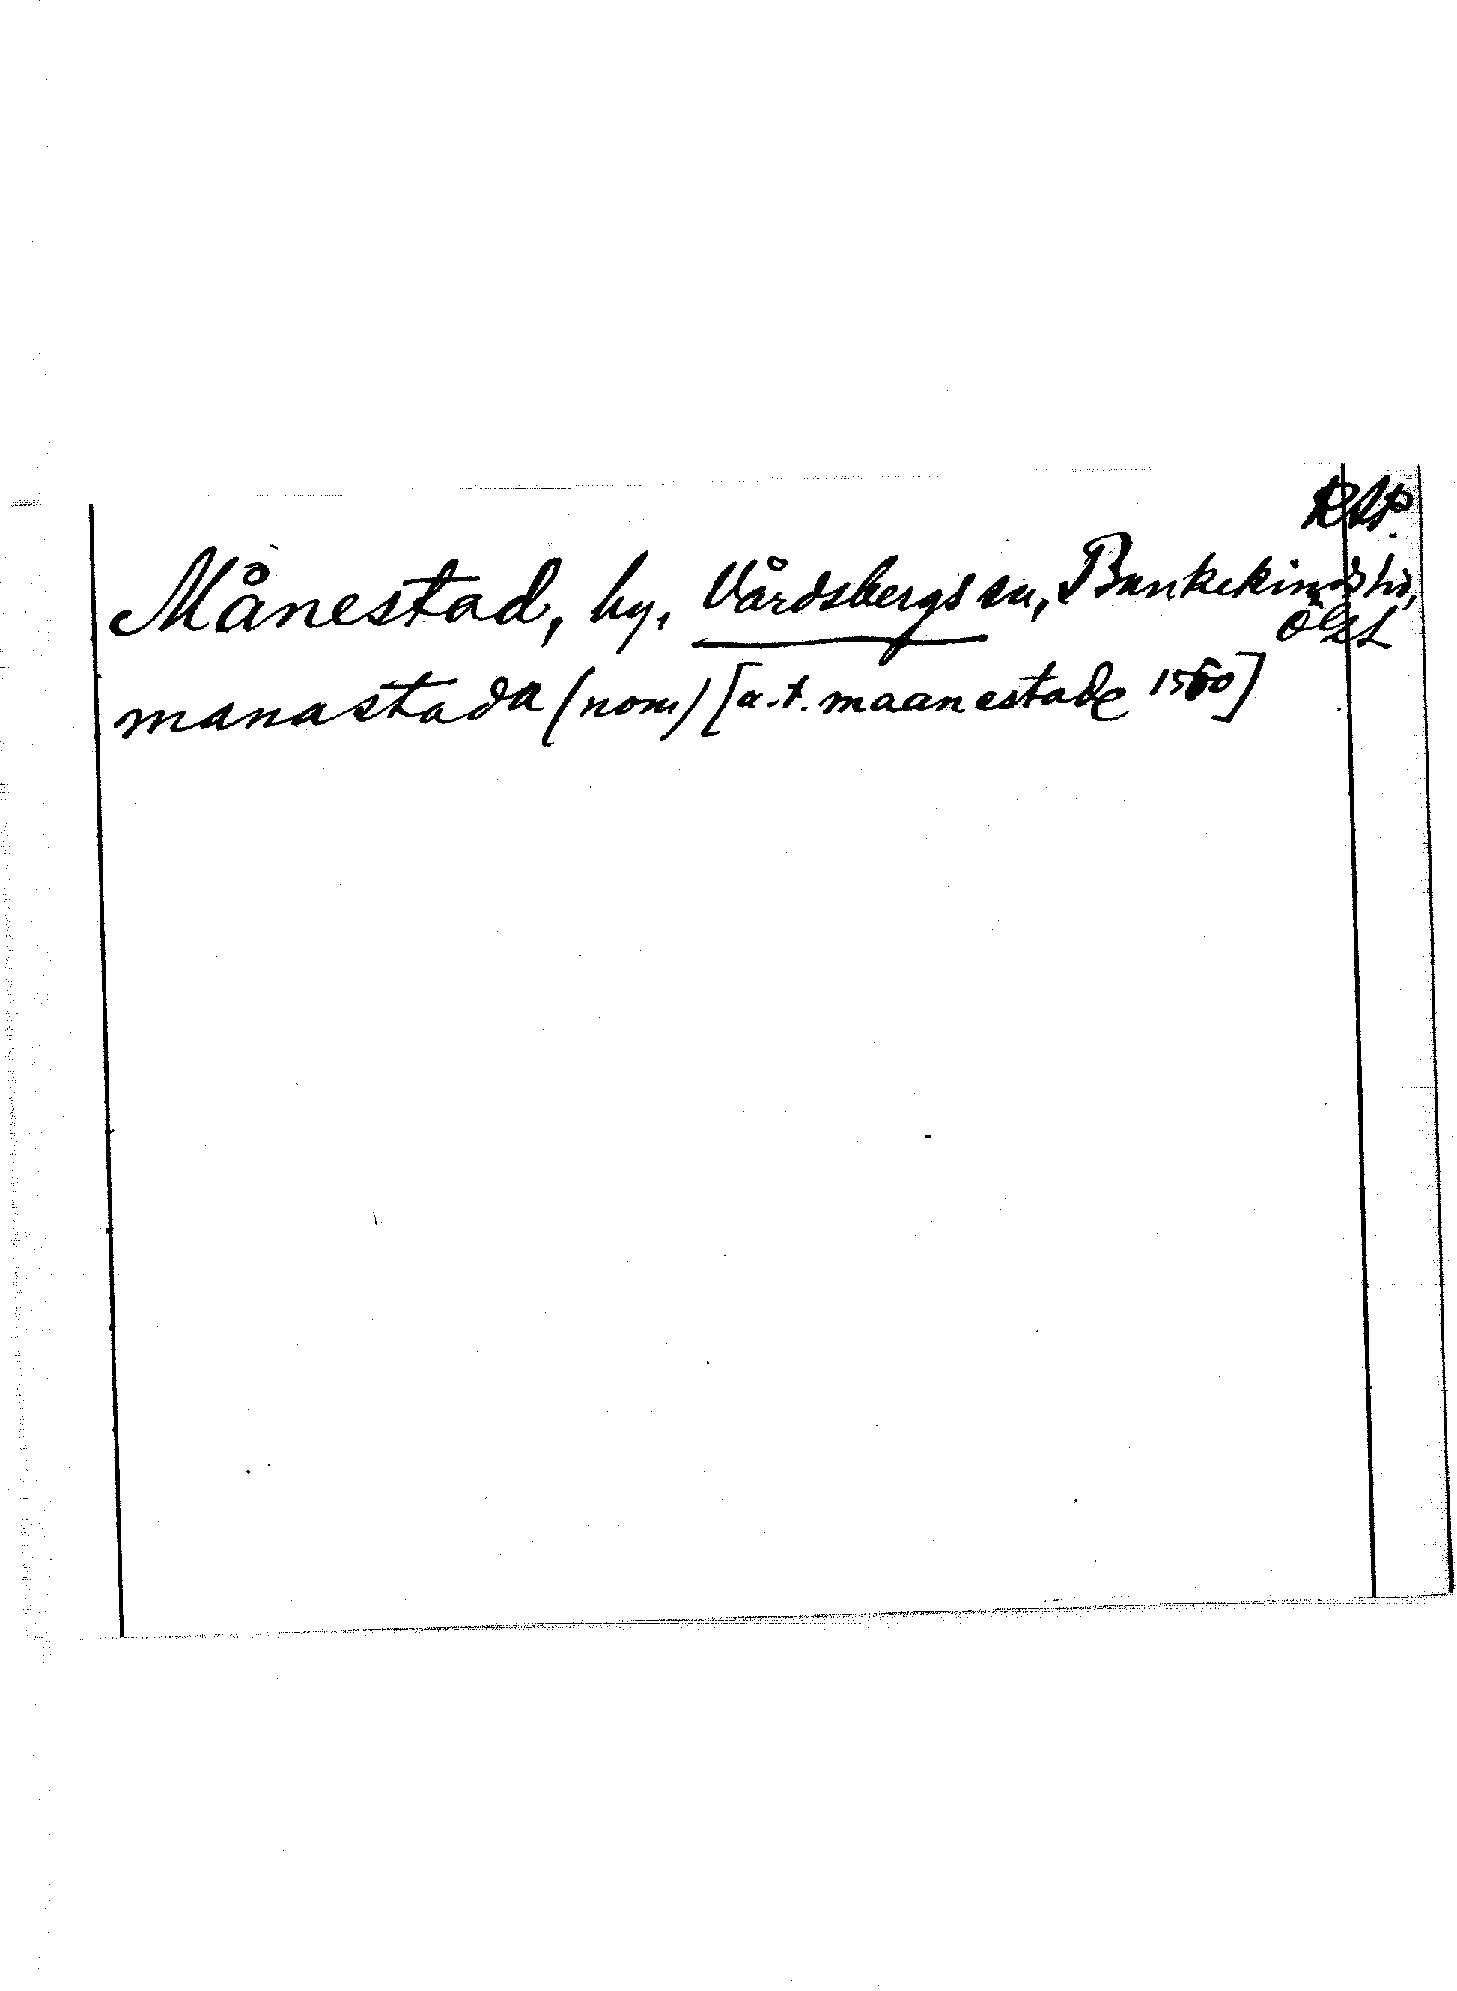 RAP.
Månestad, by, Vårdsbergs sn, Bankekinds hd,
Ögtl
manastada (nom) [a.t. maanestade 1560]